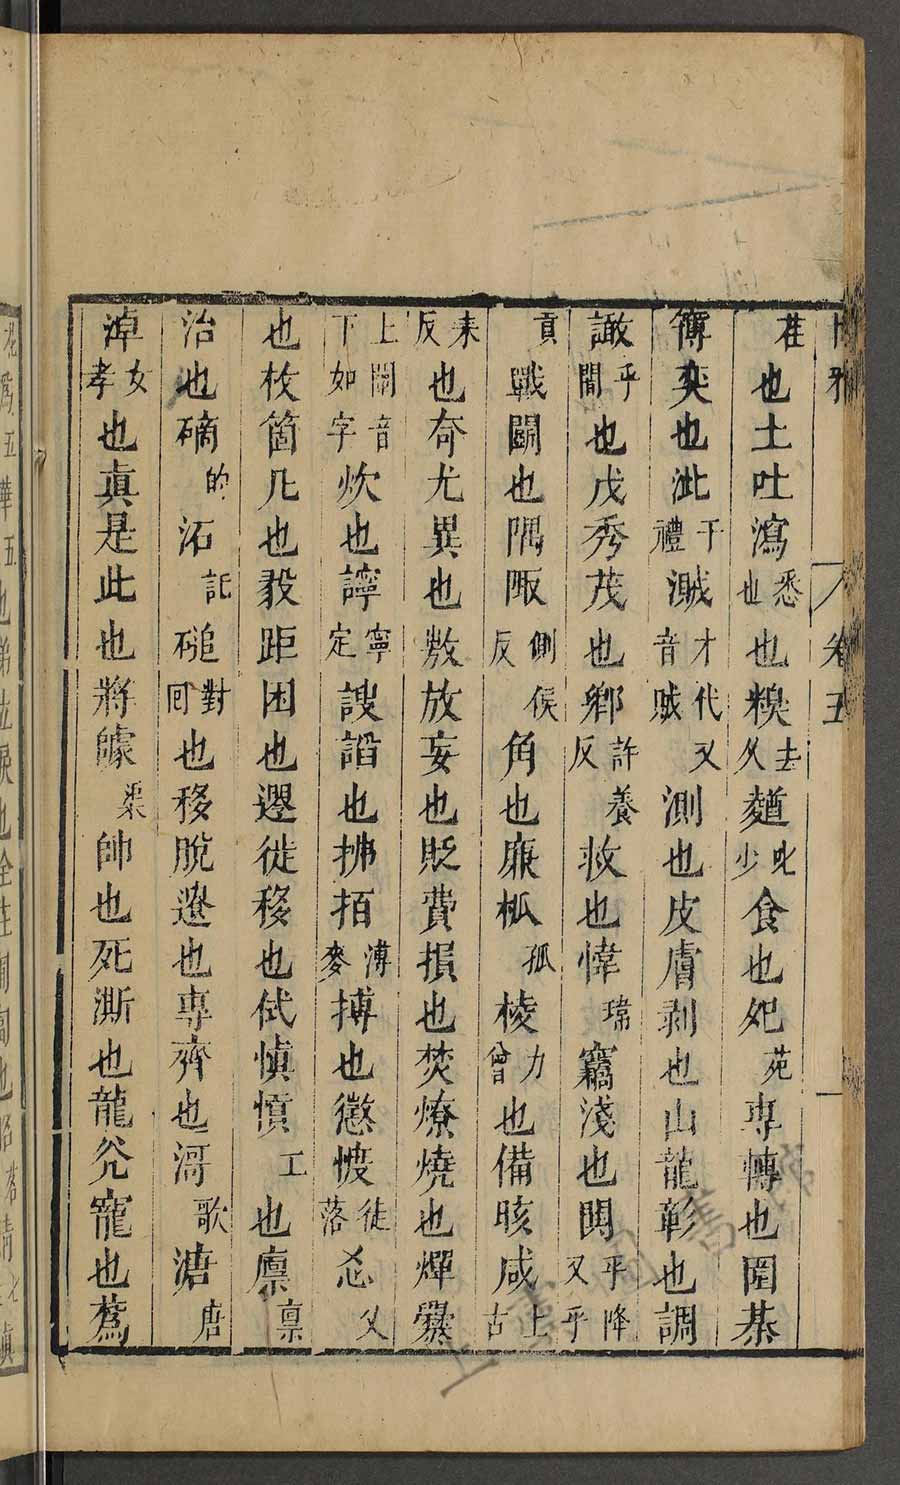 博雅 卷五
荏也土吐瀉悉也也糗去久麵叱少食也夗苑専轉也圄棊
簙奕也泚千禮測才代又音賊測也皮膚剥也山龍彰也調
譀乎闞也戊秀茂也鄉許養反救也愇瑋竊淺也鬨乎降又乎
貢戰鬭也隅陬側侯反角也廉柧孤棱力曾也備晐咸上古
來反也奇尤異也敖放妄也貶費損也焚燎燒也燀爨
上闡音下如字炊也譐寧定謏謟也拂拍溥麥搏也懲㥄徒落忩乂
也枚箇几也毅距困也遷徙移也侙慎憤工也廪禀
治也磆的沰託磓對回也移脫遯也専齊也滒歌溏唐
淖女孝也真是此也將𠂎渠帥也死澌也龍㝉寵也蔿